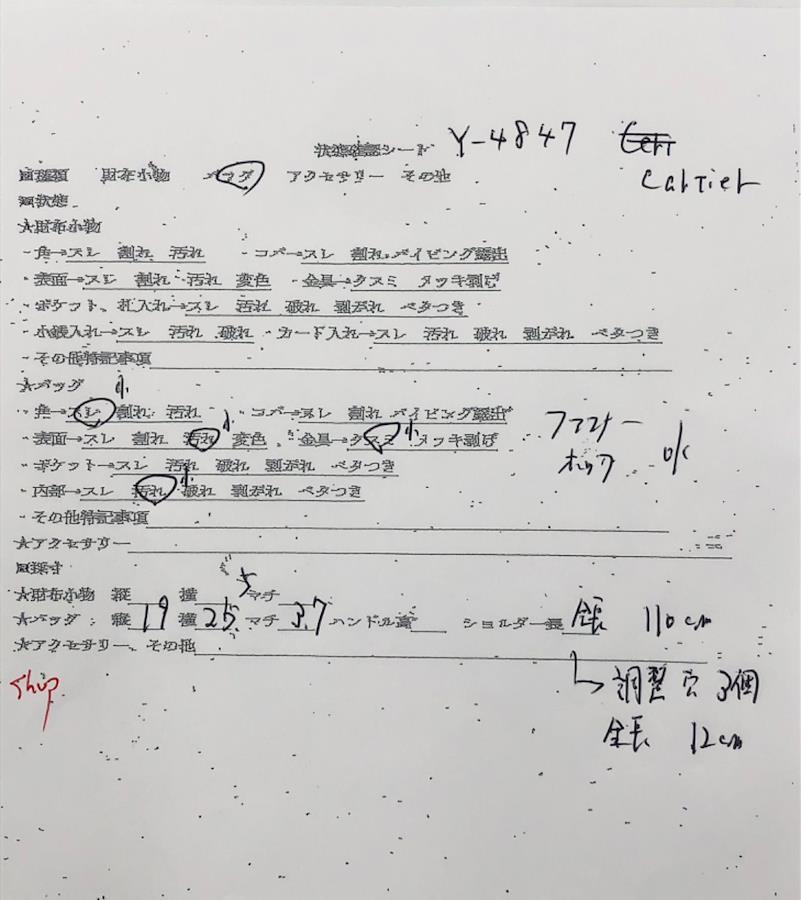 状態確認シート Y-4847
Cartier
■種類 財布小物 バッグ アクセサリー その他
■状態
★財布小物
・角→スレ 割れ 汚れ ・コバ→スレ 割れ パイピング露出
・表面→スレ 割れ 汚れ 変色 ・金具→クスミ メッキ剥げ
・ポケット、札入れ→スレ 汚れ 破れ 剥がれ ベタつき
・小銭入れ→スレ 汚れ 破れ ・カード入れ→スレ 汚れ 破れ 剥がれ ベタつき
・その他特記事項
★バッグ 小
・角→スレ 割れ 汚れ ・コバ→スレ 割れ パイピング露出
・表面→スレ 割れ 汚れ 小 変色 ・金具→クスミ 小 メッキ剥げ
ファスナー
ホック OK
・ポケット→スレ 汚れ 破れ 剥がれ ベタつき
・内部→スレ 汚れ 小 破れ 剥がれ ベタつき
・その他特記事項
★アクセサリー
■採寸
★財布小物 縦 横 マチ
★バッグ：縦 19 横 25 マチ 3.7 ハンドル高 ショルダー長 全長 110cm
★アクセサリー、その他
ship
↳調整穴 3個
全長 12cm